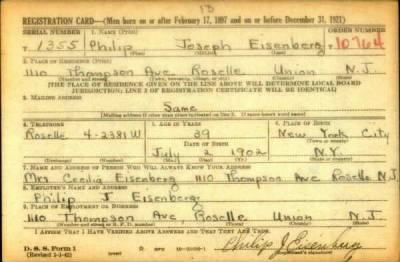 13
REGISTRATION CARD—(Men born on or after February 17, 1897 and on or before December 31, 1921)
SERIAL NUMBER 1. NAME (Print) ORDER NUMBER
T 1355 Philip Joseph Eisenberg T 10764
(First) (Middle) (Last)
2. PLACE OF RESIDENCE (Print)
1110 Thompson Ave Roselle Union N.J.
(Number and street) (Town, township, village, or city) (County) (State)
[THE PLACE OF RESIDENCE GIVEN ON THE LINE ABOVE WILL DETERMINE LOCAL BOARD
JURISDICTION; LINE 2 OF REGISTRATION CERTIFICATE WILL BE IDENTICAL]
3. MAILING ADDRESS
Same
[Mailing address if other than place indicated on line 2. If same insert word same]
4. TELEPHONE 5. AGE IN YEARS 6. PLACE OF BIRTH
Roselle 4-2381W 39 New York City
DATE OF BIRTH (Town or county)
July 2 1902 N.Y.
(Exchange) (Number) (Mo.) (Day) (Yr.) (State or country)
7. NAME AND ADDRESS OF PERSON WHO WILL ALWAYS KNOW YOUR ADDRESS
Mrs Cecilia Eisenberg 1110 Thompson Ave Roselle N.J.
8. EMPLOYER'S NAME AND ADDRESS
Philip J. Eisenberg
9. PLACE OF EMPLOYMENT OR BUSINESS
1110 Thompson Ave, Roselle Union N.J.
(Number and street or R. F. D. number) (Town) (County) (State)
I AFFIRM THAT I HAVE VERIFIED ABOVE ANSWERS AND THAT THEY ARE TRUE.
D. S. S. Form 1
(Revised 1-1-42) (over) Philip J Eisenberg
(Registrant's signature)